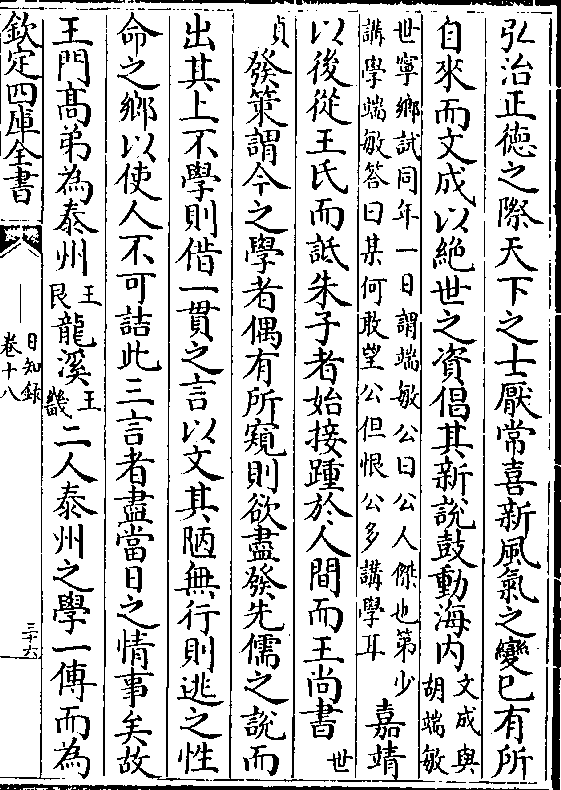 弘治正德之際天下之士厭常喜新風氣之變已有所
自來而文成以絶世之資倡其新說鼓動海内文成與胡端敏
世寧鄉試同年一日謂端敏公曰公人傑也第少
講學端敏答曰某何敢望公但恨公多講學耳嘉靖
以後從王氏而詆朱子者始接踵於人間而王尚書世
貞發策謂今之學者偶有所窺則欲盡發先儒之說而
出其上不學則借一貫之言以文其陋無行則逃之性
命之鄉以使人不可詰此三言者盡當日之情事矣故
王門髙弟為泰州王艮龍溪王畿二人泰州之學一傳而為
欽定四庫全書
日知錄
卷十八
三十六